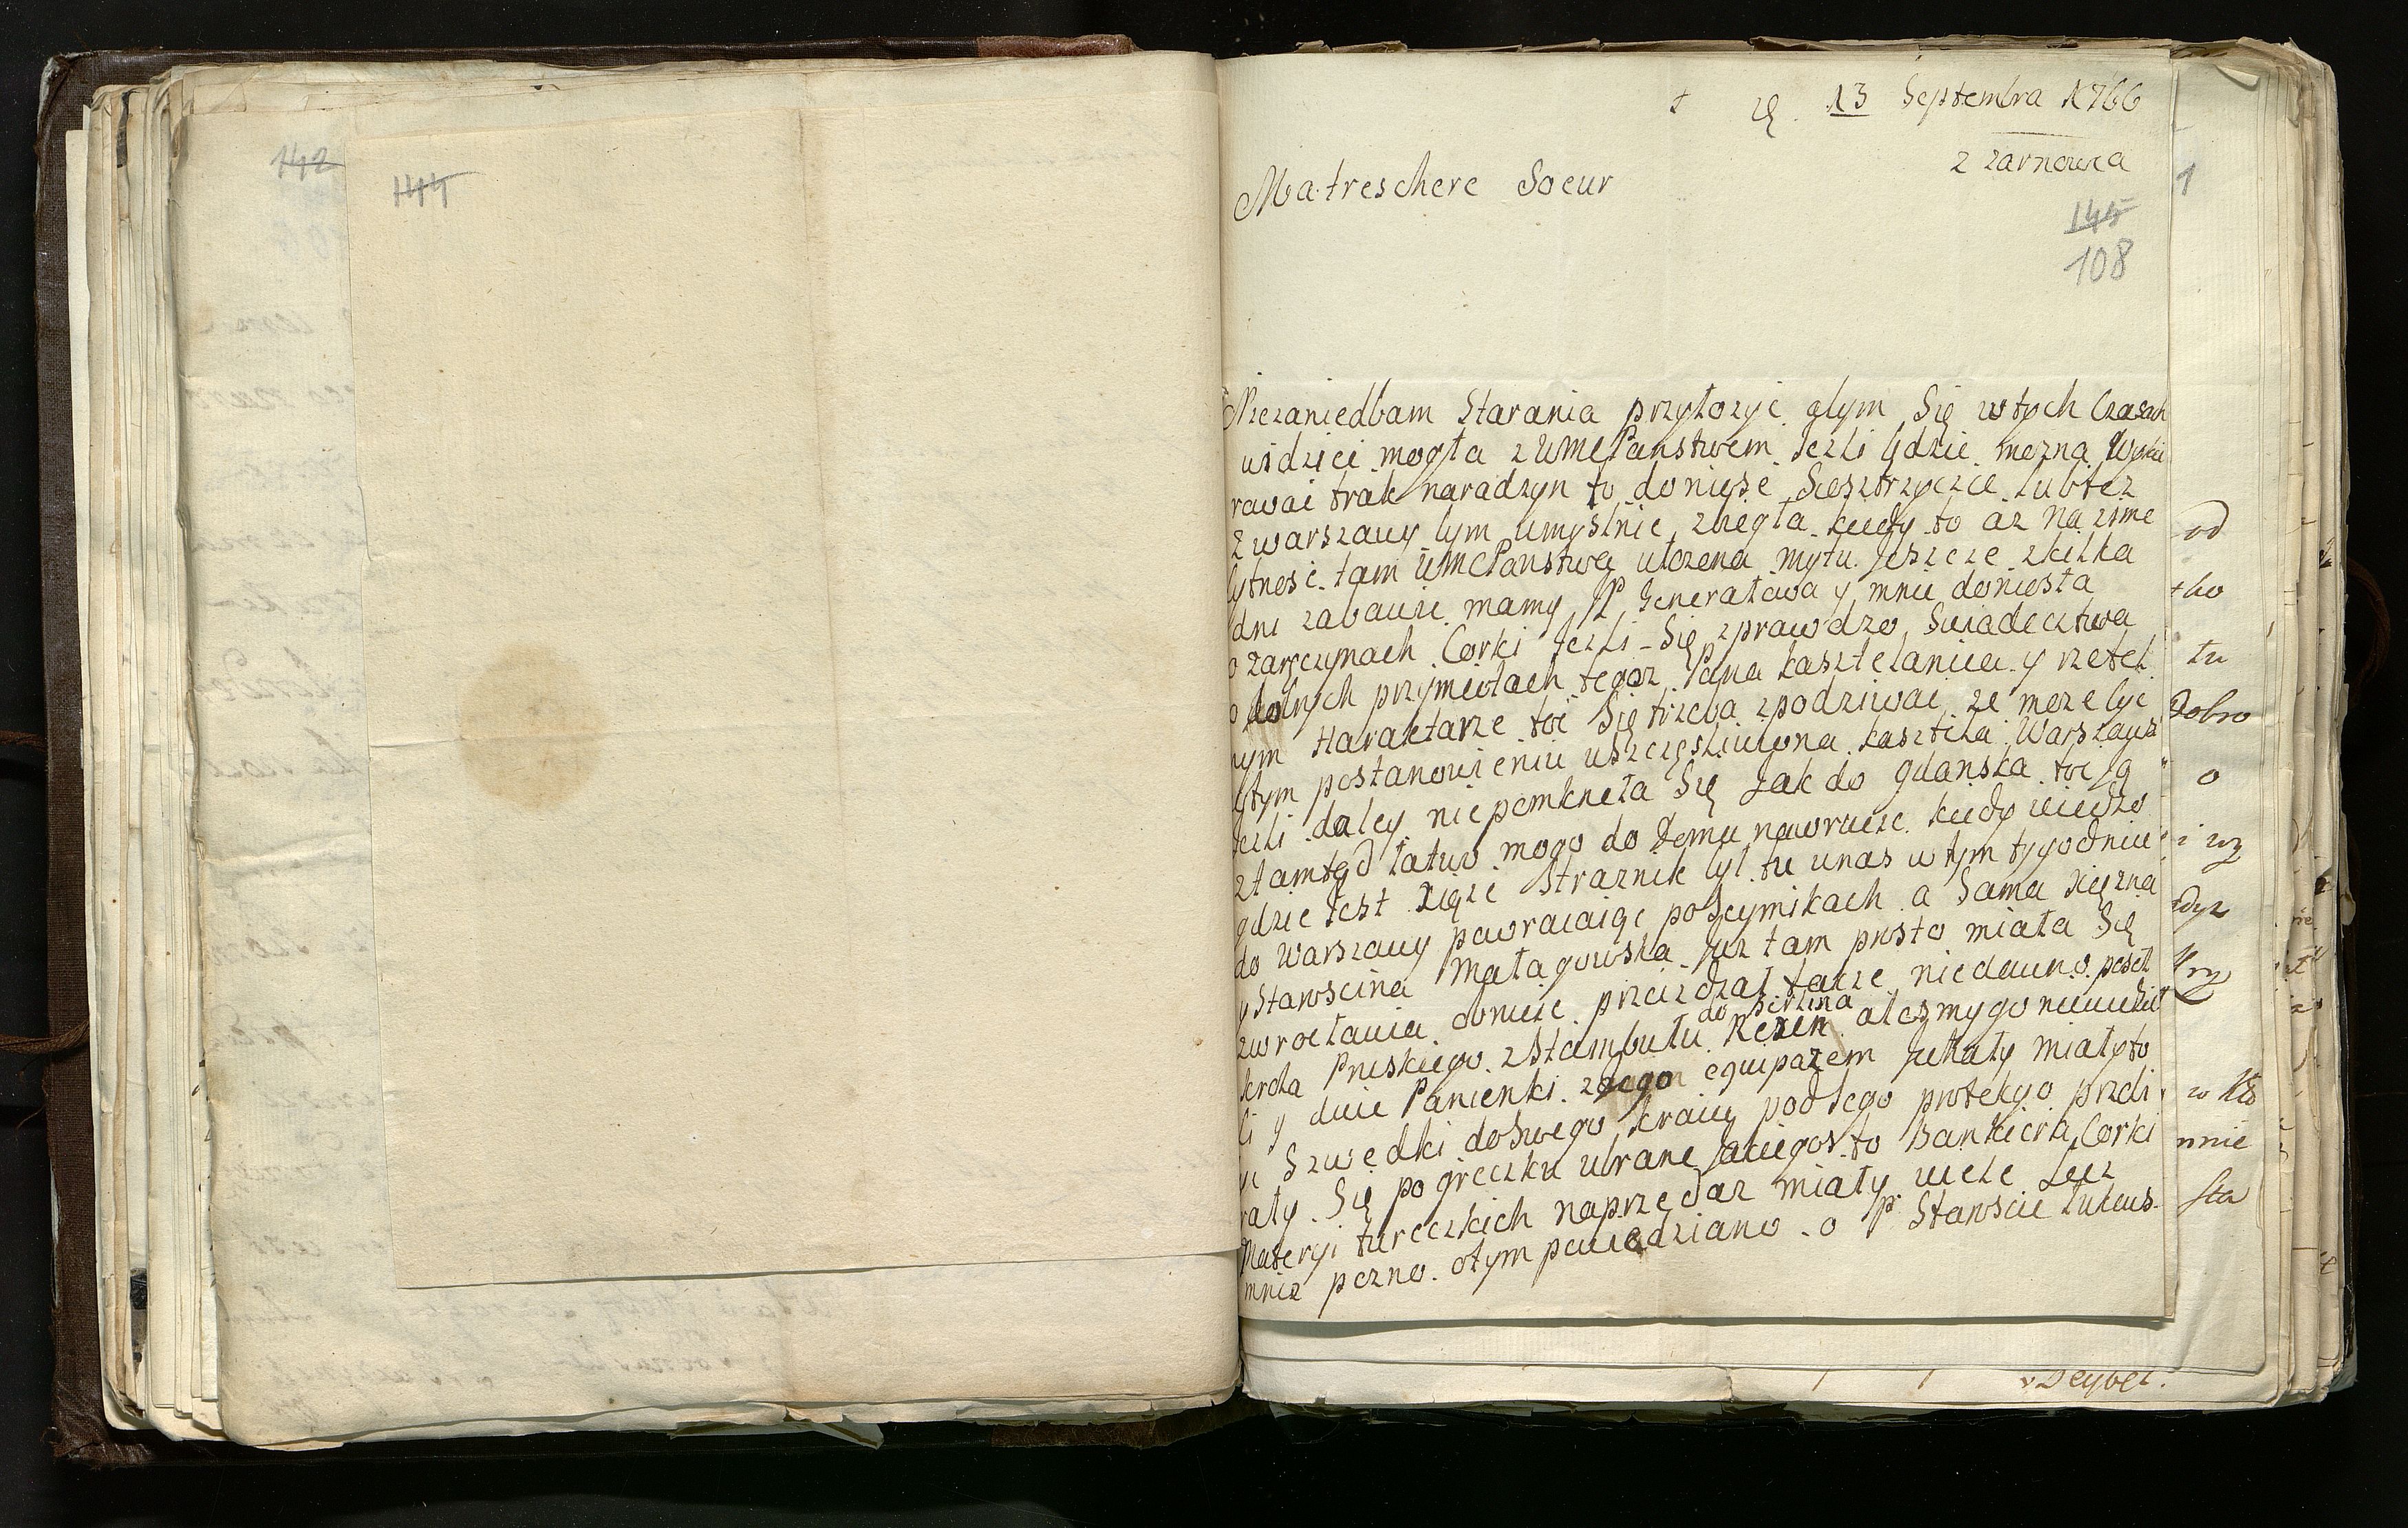 142
144
13 Septembra 1766
z zarnowca
Ma treschere Soeur
1
145
108
Niezaniedbam Starania przyłozyc alym Się wtych Czasach
widziec mogła z UMCPanstwem Jezli gdzie mozna
rawac trak naradzyn to doniese Siesztrzyczce lubtez
z warszawy lym umyslnie zbiegła kiedy to az na zime
lytnosc tam UMCPanstwa ułozena mytu Jeszcze zkilka
dni zabawic mamy P Generałowa y mnie doniosła
o zaręczynach Corki Jezli Się zprawdzo Swiadecztwa
o dolnych przymiotach tegoz Pana kasztelanica y rzetel
nym Harakterze toc Się trzeba zpodziwac ze moze lyc
wtym postanowieniu uszczęsliwiona
Jezli daley niepomkneła Się Jak do gdanska toc
ztamtąd łatwo mogo do Domu nawrucic kiedy wiedzo
gdzie Jest Xiąze Straznik lył tu unas wtym tygodniu
do Warszawy powracaiąc posejmikach a Sama Xięzna
y Staroscina Małagowska juz tam prosto miała Się
zwrocławia donieze przeiezdzał takze niedawno poseł
do Berlina
krola Pruskiego zStambułu Rexen alezmygo niewidzie
li y dwie Panienki zJego equipazem Jechały miały to
yc Szwedki doSwego kraiu podJego protekyo przebi
rały Się po greczku ubrane Jakiegos to Bankiera Corki
Materyi tureczkich naprzedaz miały wiele Lecz
mnie pozno otym powiedziano o P Staroscie
od
tho
tu
Dobro
o
i wz
w kto
mnie
sta
Deybel.